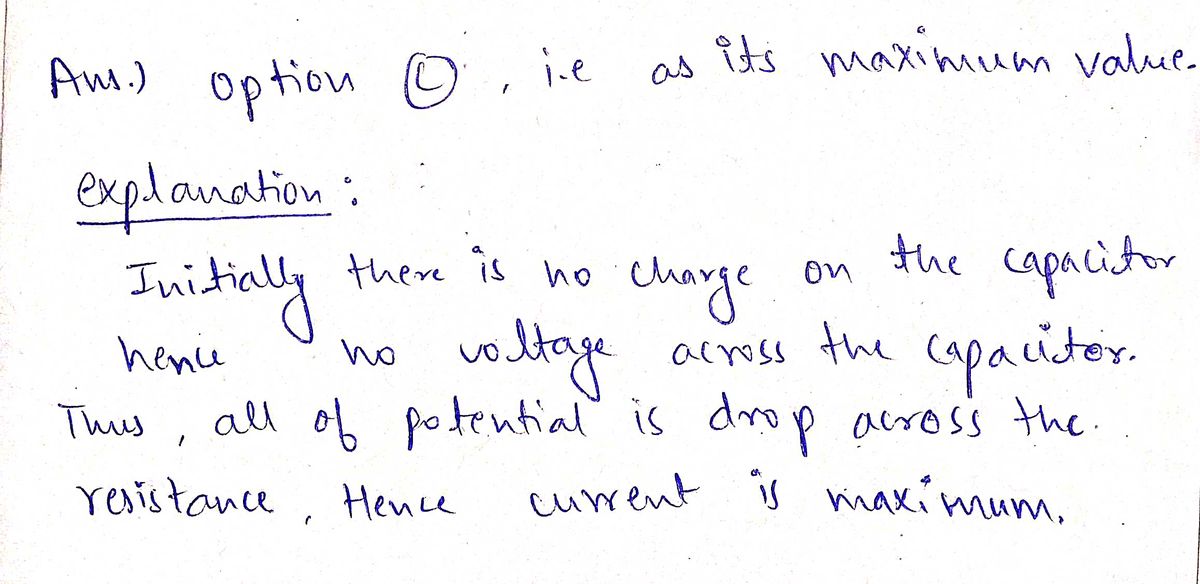 Ans.) option Ⓒ, i.e as its maximum value.
explanation:
Initially there is no charge on the capacitor
hence no voltage across the capacitor.
Thus, all of potential is drop across the.
resistance, Hence current is maximum.